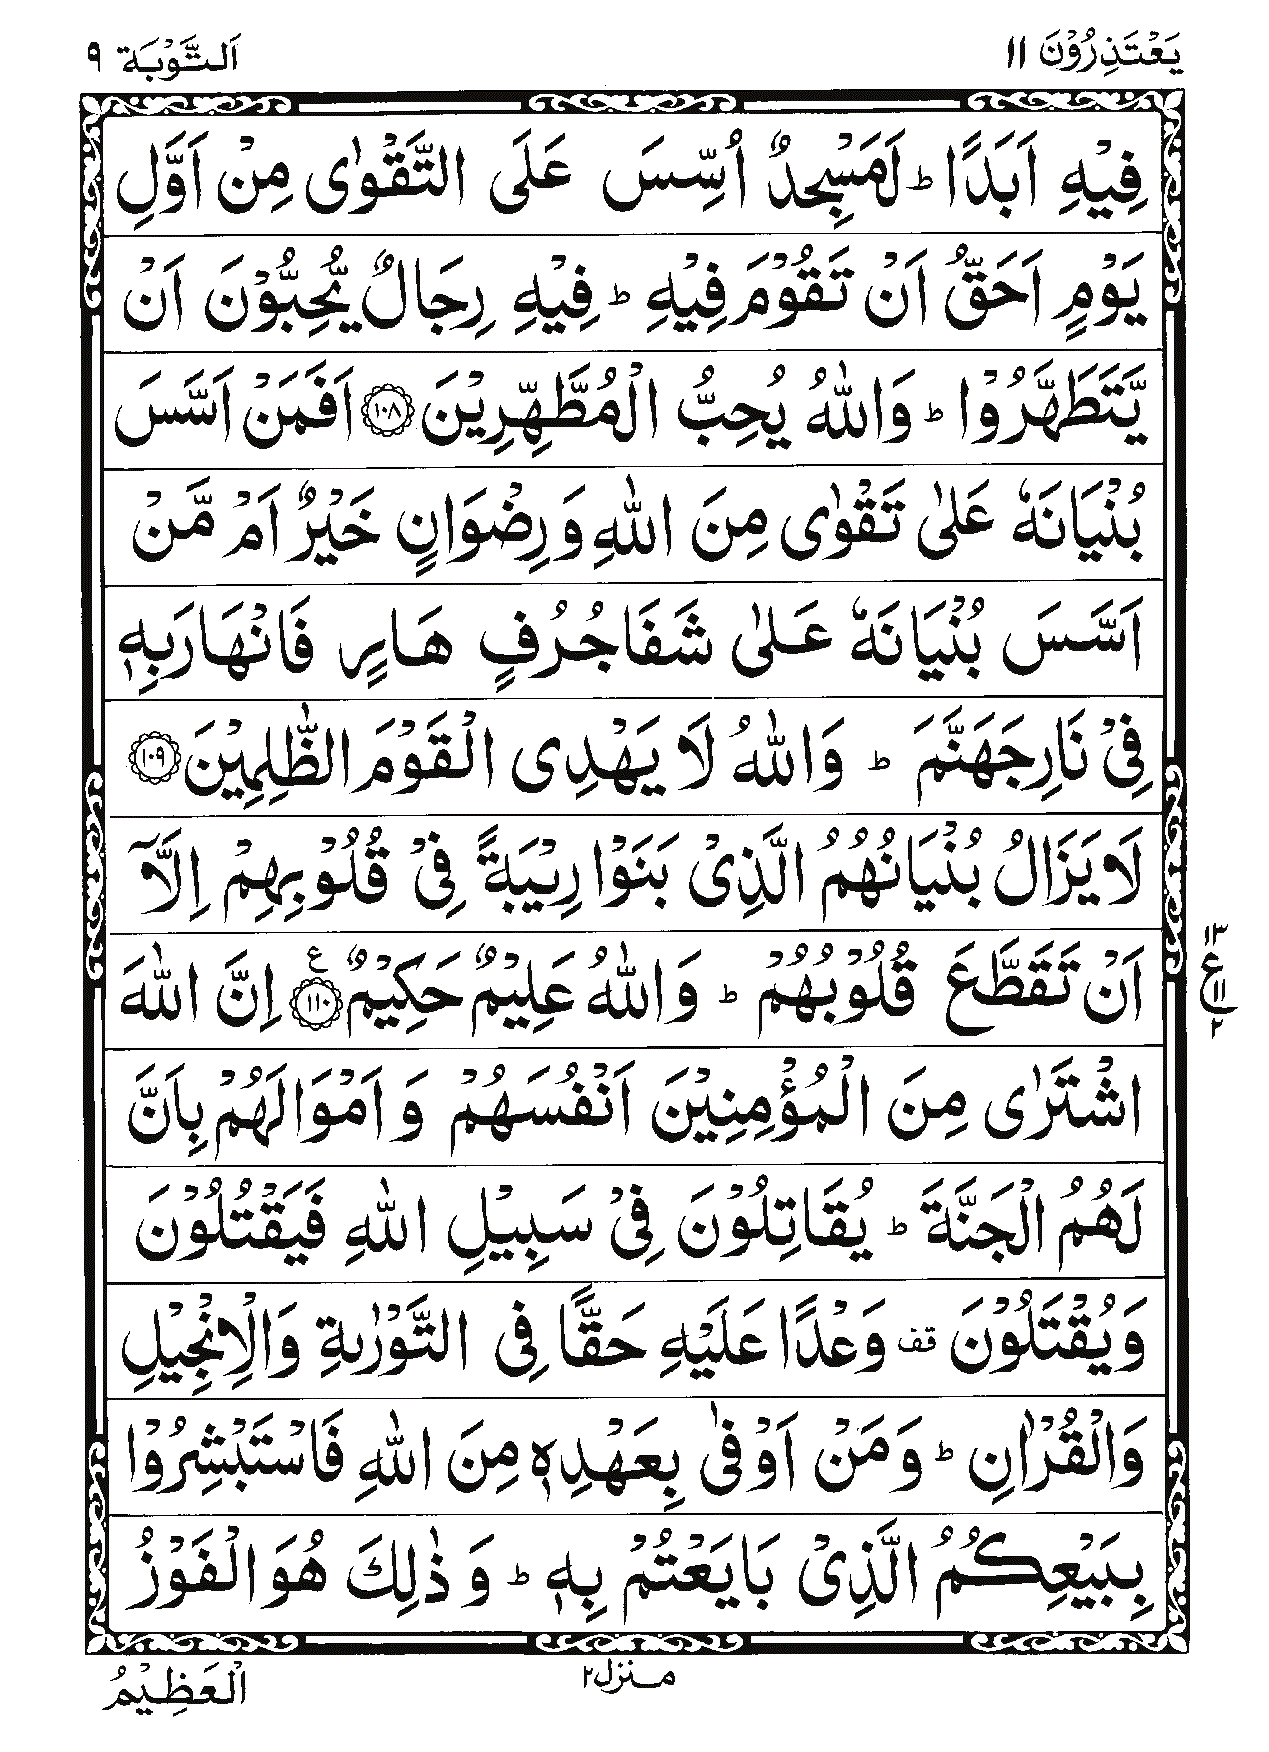 يَعْتَذِرُوْنَ ١١
اَلتَّوْبَة ٩
فِيْهِ اَبَدًا ؕ لَمَسْجِدٌ اُسِّسَ عَلَى التَّقْوٰى مِنْ اَوَّلِ
يَوْمٍ اَحَقُّ اَنْ تَقُوْمَ فِيْهِ ؕ فِيْهِ رِجَالٌ يُّحِبُّوْنَ اَنْ
يَّتَطَهَّرُوْا ؕ وَاللّٰهُ يُحِبُّ الْمُطَّهِّرِيْنَ ۝١٠٨ اَفَمَنْ اَسَّسَ
بُنْيَانَهٗ عَلٰى تَقْوٰى مِنَ اللّٰهِ وَرِضْوَانٍ خَيْرٌ اَمْ مَّنْ
اَسَّسَ بُنْيَانَهٗ عَلٰى شَفَا جُرُفٍ هَارٍ فَانْهَارَ بِهٖ
فِيْ نَارِ جَهَنَّمَ ؕ وَاللّٰهُ لَا يَهْدِى الْقَوْمَ الظّٰلِمِيْنَ ۝١٠٩
لَا يَزَالُ بُنْيَانُهُمُ الَّذِيْ بَنَوْا رِيْبَةً فِيْ قُلُوْبِهِمْ اِلَّاۤ
اَنْ تَقَطَّعَ قُلُوْبُهُمْ ؕ وَاللّٰهُ عَلِيْمٌ حَكِيْمٌ ۝١١٠ ع اِنَّ اللّٰهَ
١٣
ع
١١
٢
اشْتَرٰى مِنَ الْمُؤْمِنِيْنَ اَنْفُسَهُمْ وَ اَمْوَالَهُمْ بِاَنَّ
لَهُمُ الْجَنَّةَ ؕ يُقَاتِلُوْنَ فِيْ سَبِيْلِ اللّٰهِ فَيَقْتُلُوْنَ
وَيُقْتَلُوْنَ قف وَعْدًا عَلَيْهِ حَقًّا فِى التَّوْرٰىةِ وَالْاِنْجِيْلِ
وَالْقُرْاٰنِ ؕ وَمَنْ اَوْفٰى بِعَهْدِهٖ مِنَ اللّٰهِ فَاسْتَبْشِرُوْا
بِبَيْعِكُمُ الَّذِيْ بَايَعْتُمْ بِهٖ ؕ وَ ذٰلِكَ هُوَ الْفَوْزُ
مـنزل ٢
الْعَظِيْمُ